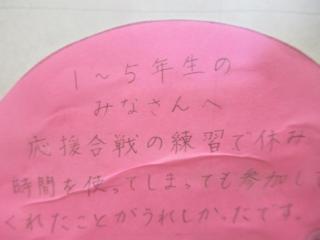 1～5年生の
みなさんへ
応援合戦の練習で休み
時間を使ってしまっても参加して
くれたことがうれしかったです。